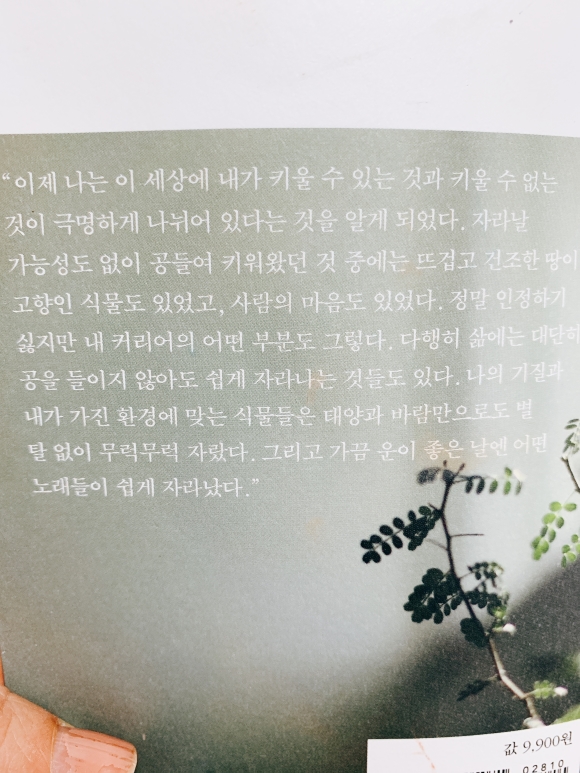 “이제 나는 이 세상에 내가 키울 수 있는 것과 키울 수 없는
것이 극명하게 나뉘어 있다는 것을 알게 되었다. 자라날
가능성도 없이 공들여 키워왔던 것 중에는 뜨겁고 건조한 땅이
고향인 식물도 있었고, 사람의 마음도 있었다. 정말 인정하기
싫지만 내 커리어의 어떤 부분도 그렇다. 다행히 삶에는 대단히
공을 들이지 않아도 쉽게 자라나는 것들도 있다. 나의 기질과
내가 가진 환경에 맞는 식물들은 태양과 바람만으로도 별
탈 없이 무럭무럭 자랐다. 그리고 가끔 운이 좋은 날엔 어떤
노래들이 쉽게 자라났다.”
값 9,900원
02810